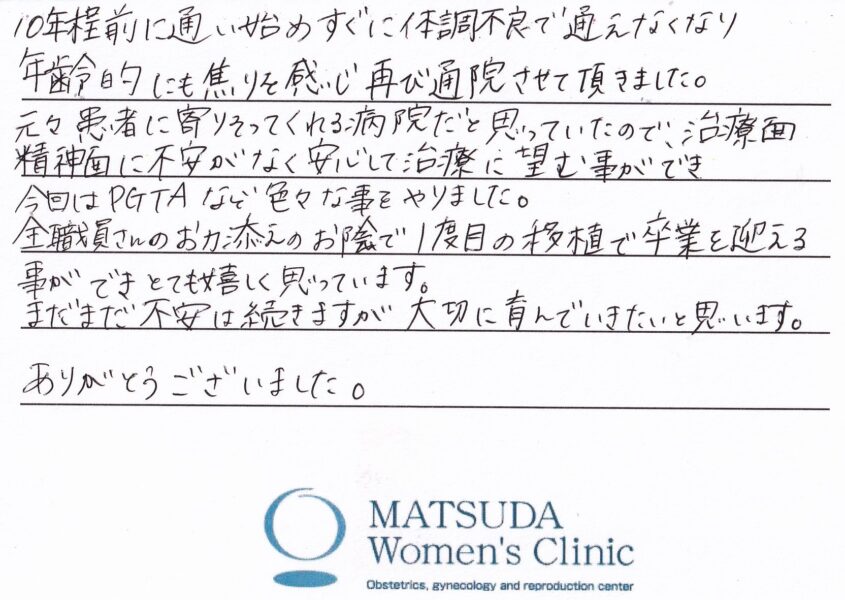 10年程前に通い始めすぐに体調不良で通えなくなり
年齢的にも焦りを感じ再び通院させて頂きました。
元々患者に寄りそってくれる病院だと思っていたので、治療面
精神面に不安がなく安心して治療に望む事ができ
今回はPGTAなど色々な事をやりました。
全職員さんのお力添えのお陰で1度目の移植で卒業を迎える
事ができとても嬉しく思っています。
まだまだ不安は続きますが大切に育んでいきたいと思います。
ありがとうございました。
MATSUDA
Women's Clinic
Obstetrics, gynecology and reproduction center